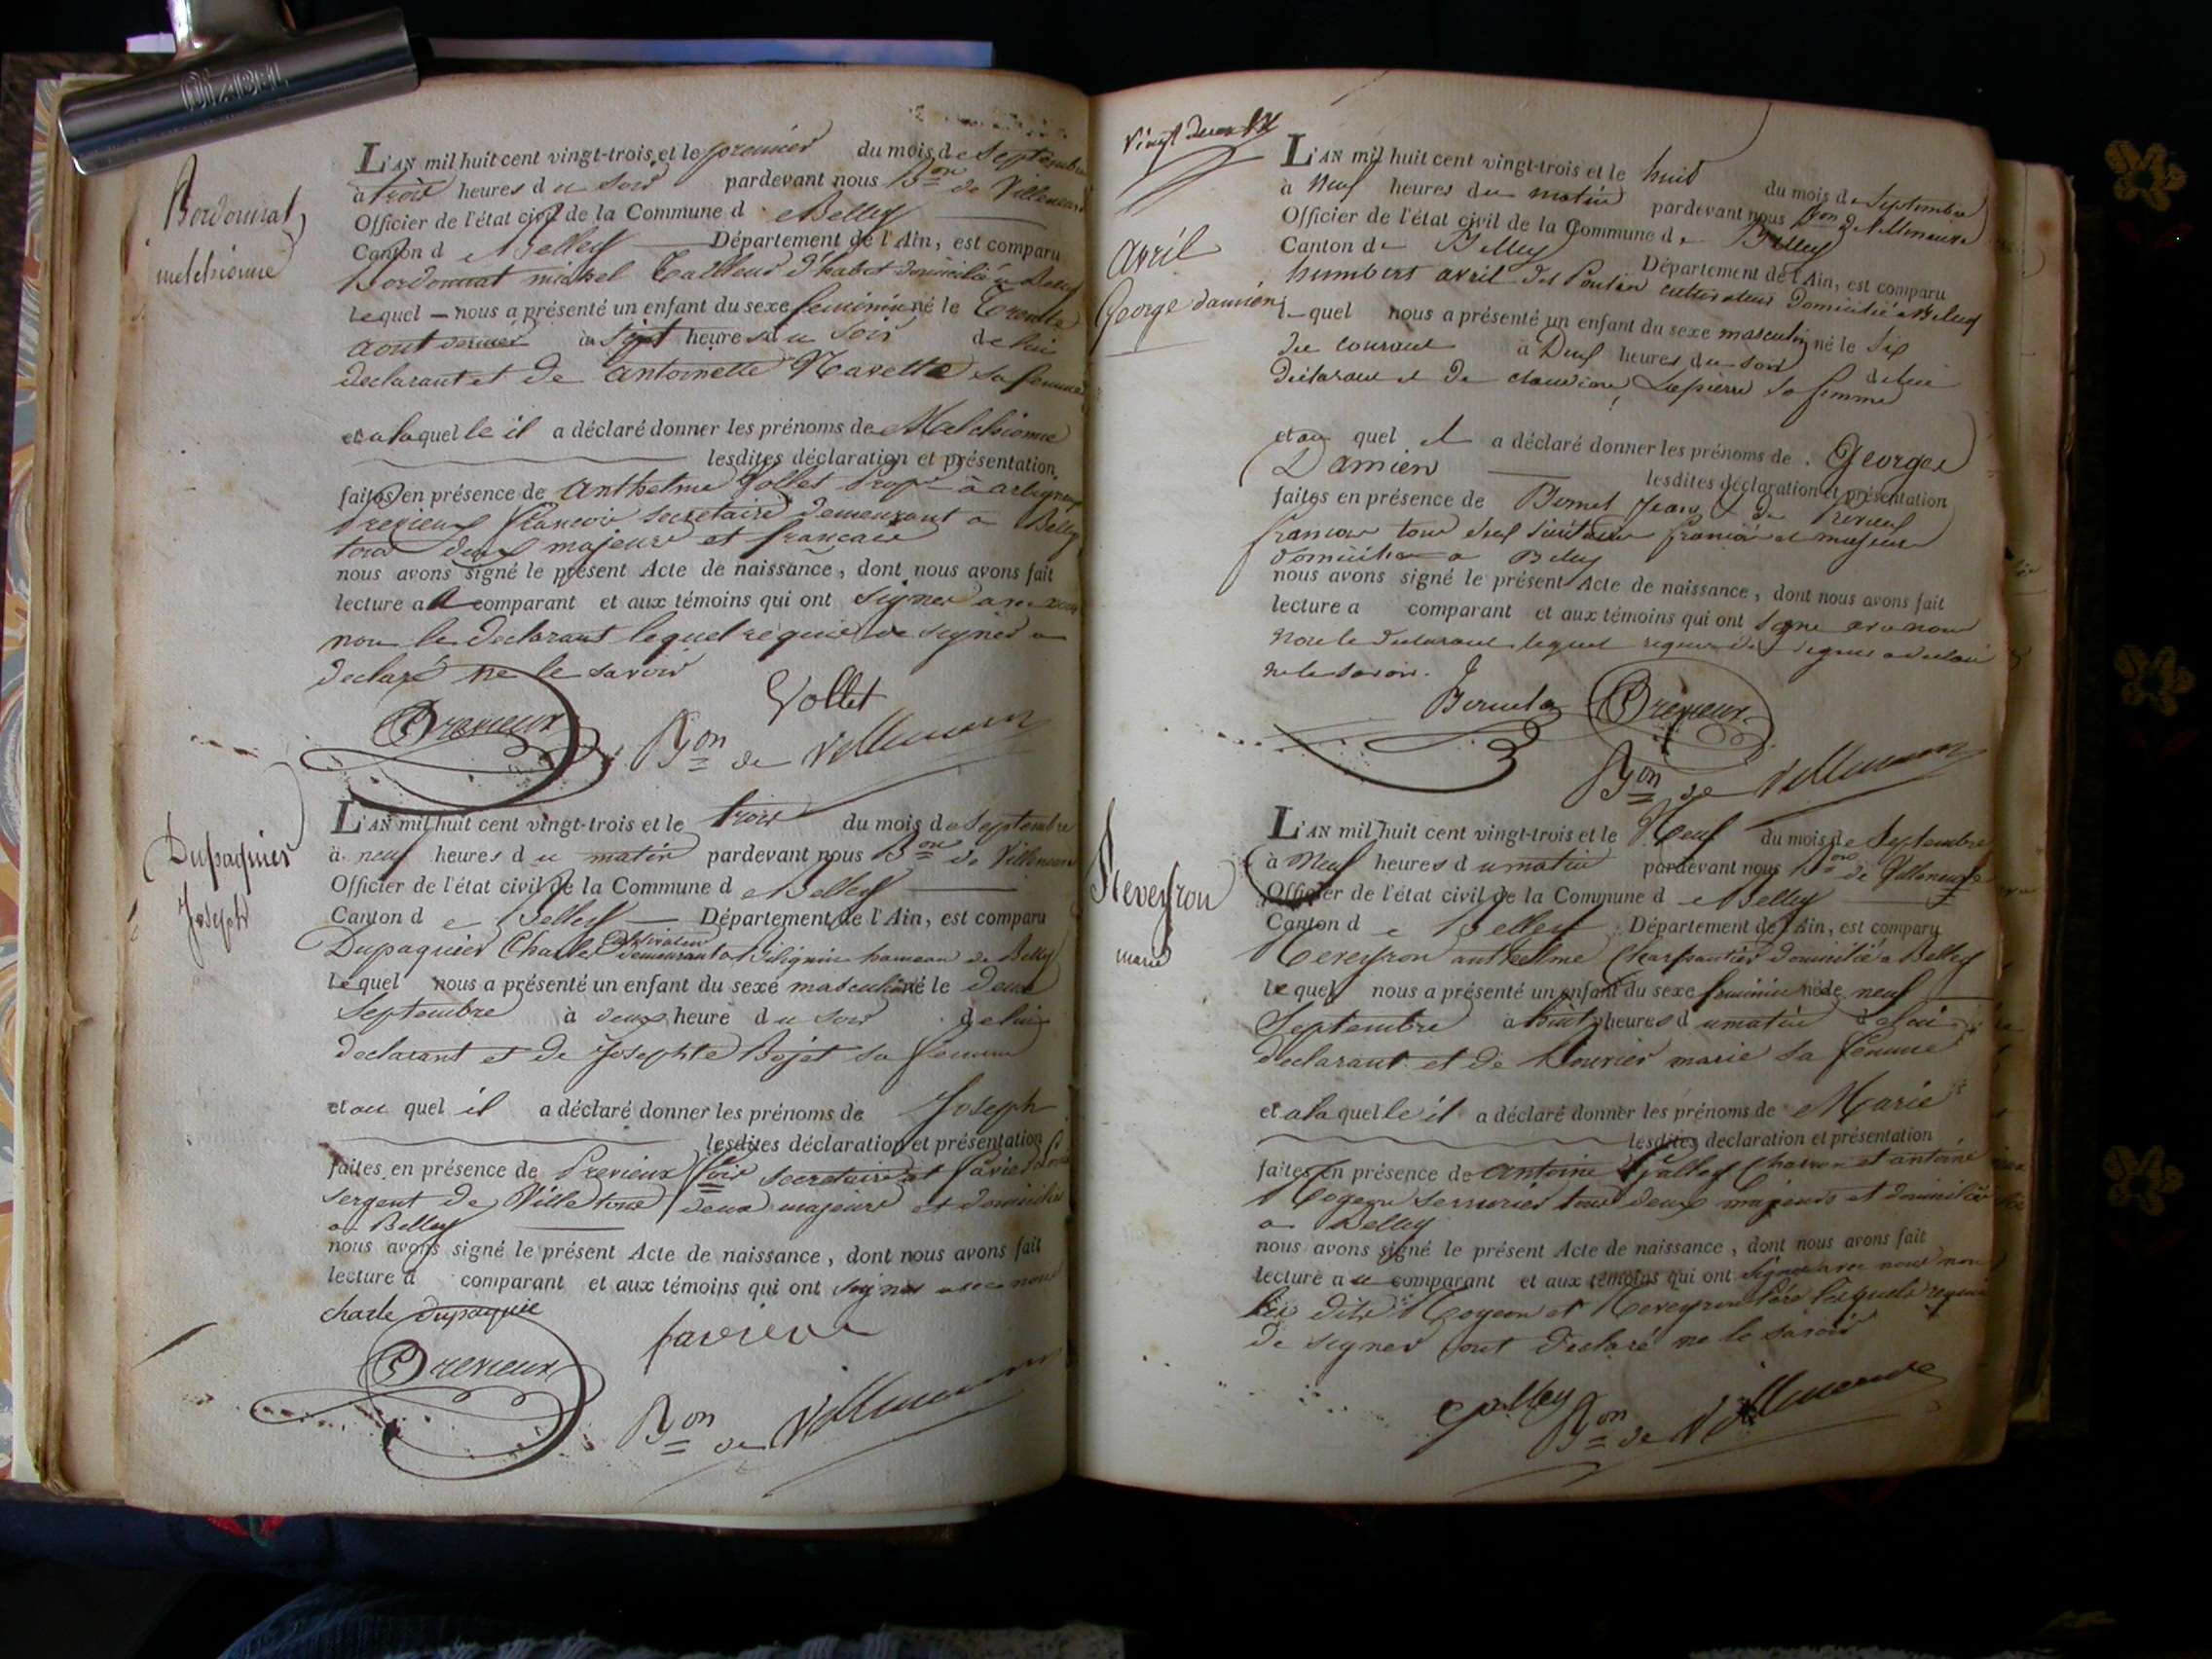 DIZABEL
Bordonnat
melchionne
L'AN mil huit cent vingt-trois et le premier du mois de Septembre
à trois heures du soir pardevant nous Bon de Villeneuve
Officier de l'état civil de la Commune de Belley
Canton de Belley Département de l'Ain, est comparu
Bordonnat michel Tailleur d'habit domicilié a Belley
lequel nous a présenté un enfant du sexe feminin né le Trente
aout dernier à sept heures du soir de lui
declarant et de antoinette Navette sa femme
et a laquelle il a déclaré donner les prénoms de Melchionne
lesdites déclaration et présentation
faites en présence de Anthelme Vollet Propre à arbignieu
Previeux francois secretaire demeurant a Belley
tous deux majeurs et francais
nous avons signé le présent Acte de naissance, dont nous avons fait
lecture au comparant et aux témoins qui ont signés avec nous
non le declarant lequel requis de signer a
declaré ne le savoir
Vollet
Previeux Bon de Villeneuve
Dupaquier
Joseph
L'AN mil huit cent vingt-trois et le trois du mois de Septembre
à neuf heures du matin pardevant nous Bon de Villeneuve
Officier de l'état civil de la Commune de Belley
Canton de Belley Département de l'Ain, est comparu
Dupaquier Charle Cultivateur demeurant a Bilignin hameau de Belley
lequel nous a présenté un enfant du sexe masculin né le deux
Septembre à deux heure du soir de lui
declarant et de Josephte Bojet sa femme
et au quel il a déclaré donner les prénoms de Joseph
lesdites déclaration et présentation
faites en présence de Previeux fois secretaire et
sergent de Ville tous deux majeurs et domiciliés
a Belley
nous avons signé le présent Acte de naissance, dont nous avons fait
lecture a comparant et aux témoins qui ont signés avec nous
charle dupaquie
Previeux
Bon de Villeneuve
Vingt deux
Avril
George damien
L'AN mil huit cent vingt-trois et le huit du mois de Septembre
à Neuf heures du matin pardevant nous Bon de Villeneuve
Officier de l'état civil de la Commune de Belley
Canton de Belley Département de l'Ain, est comparu
humbert avril dit Poulin cultivateur Domicilié a Belley
lequel nous a présenté un enfant du sexe masculin né le six
du courant à Deux heures du soir de lui
déclarant et de claudine Lapierre sa femme
et au quel il a déclaré donner les prénoms de George
Damien lesdites déclaration et présentation
faites en présence de Bernet Jean & de Previeux
francois tous deux francais et majeurs
domiciliés a Belley
nous avons signé le présent Acte de naissance, dont nous avons fait
lecture a comparant et aux témoins qui ont signé avec nous
non le declarant lequel requis de signer a declaré
ne le savoir.
Previeux
Bon de Villeneuve
Neveyron
marie
L'AN mil huit cent vingt-trois et le Neuf du mois de Septembre
à Neuf heures du matin pardevant nous Bon de Villeneuve
Officier de l'état civil de la Commune de Belley
Canton de Belley Département de l'Ain, est comparu
Neveyron anthelme Charpentier domicilié a Belley
lequel nous a présenté un enfant du sexe feminin né de neuf
Septembre à huit heures du matin de lui
declarant et de Bouvier marie sa femme
et a laquelle il a déclaré donner les prénoms de Marie
lesdites déclaration et présentation
faites en présence de antoine Galley Charron et antoine
Mogeon serrurier tous deux majeurs et domiciliés
a Belley
nous avons signé le présent Acte de naissance, dont nous avons fait
lecture au comparant et aux témoins qui ont signé avec nous non
les dits Mogeon et Neveyron Père lesquels requis
de signer ont declaré ne le savoir
Galley
Bon de Villeneuve